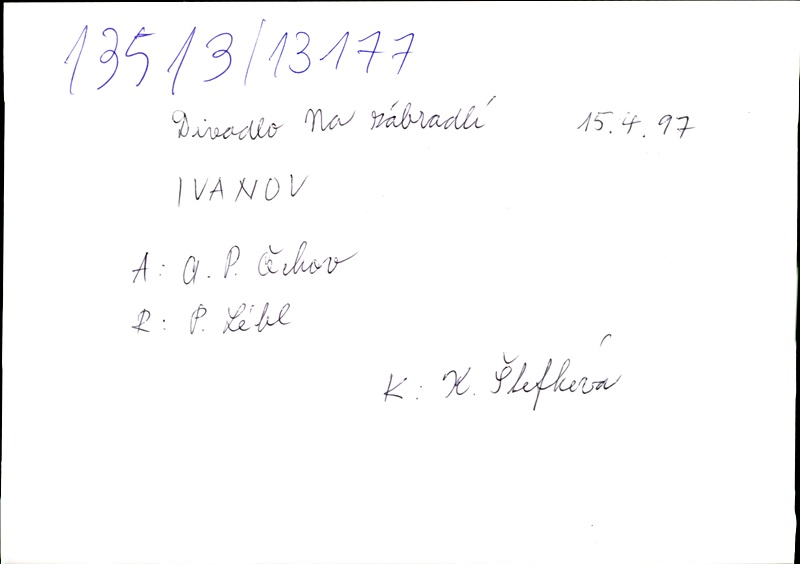 13513/13177
Divadlo Na zábradlí 15.4.97
IVANOV
A: A. P. Čechov
R: P. Lébl
K: K. Štefková